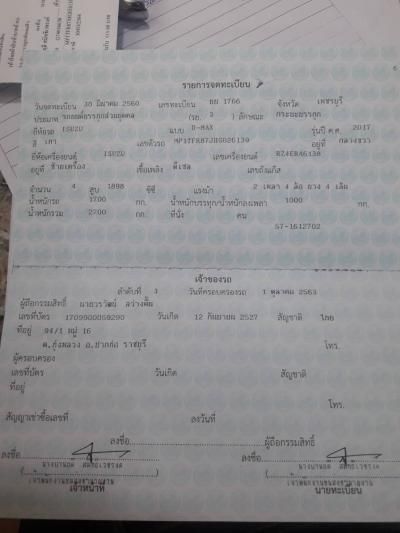 รายการจดทะเบียน
วันจดทะเบียน 30 มีนาคม 2560 เลขทะเบียน ผผ 1766 จังหวัด เพชรบุรี
ประเภท รถยนต์บรรทุกส่วนบุคคล (รย. 3 ) ลักษณะ กระบะบรรทุก
ยี่ห้อรถ ISUZU แบบ D-MAX รุ่นปี ค.ศ. 2017
สี เทา เลขตัวรถ อยู่ที่ กลางขวา
ยี่ห้อเครื่องยนต์ ISUZU เลขเครื่องยนต์ RZ4EBA6138
อยู่ที่ ซ้ายเครื่อง เชื้อเพลิง ดีเซล เลขถังแก๊ส
จำนวน 4 สูบ 1898 ซีซี แรงม้า 2 เพลา 4 ล้อ ยาง 4 เส้น
น้ำหนักรถ 1700 กก. น้ำหนักบรรทุก/น้ำหนักลงเพลา 1000 กก.
น้ำหนักรวม 2700 กก. ที่นั่ง คน
57-1612702
เจ้าของรถ
ลำดับที่ 3 วันที่ครอบครองรถ 1 ตุลาคม 2563
ผู้ถือกรรมสิทธิ์ นายวรวัฒน์ สว่างต้น
เลขที่บัตร 1709900059290 วันเกิด 12 กันยายน 2527 สัญชาติ ไทย
ที่อยู่ 94/1 หมู่ 16
ต.ทุ่งหลวง อ.ปากท่อ ราชบุรี โทร.
ผู้ครอบครอง
เลขที่บัตร วันเกิด สัญชาติ
ที่อยู่
โทร.
สัญญาเช่าซื้อเลขที่ ลงวันที่
ลงชื่อ ผู้ถือกรรมสิทธิ์
ลงชื่อ ลงชื่อ
เจ้าหน้าที่ นายทะเบียน